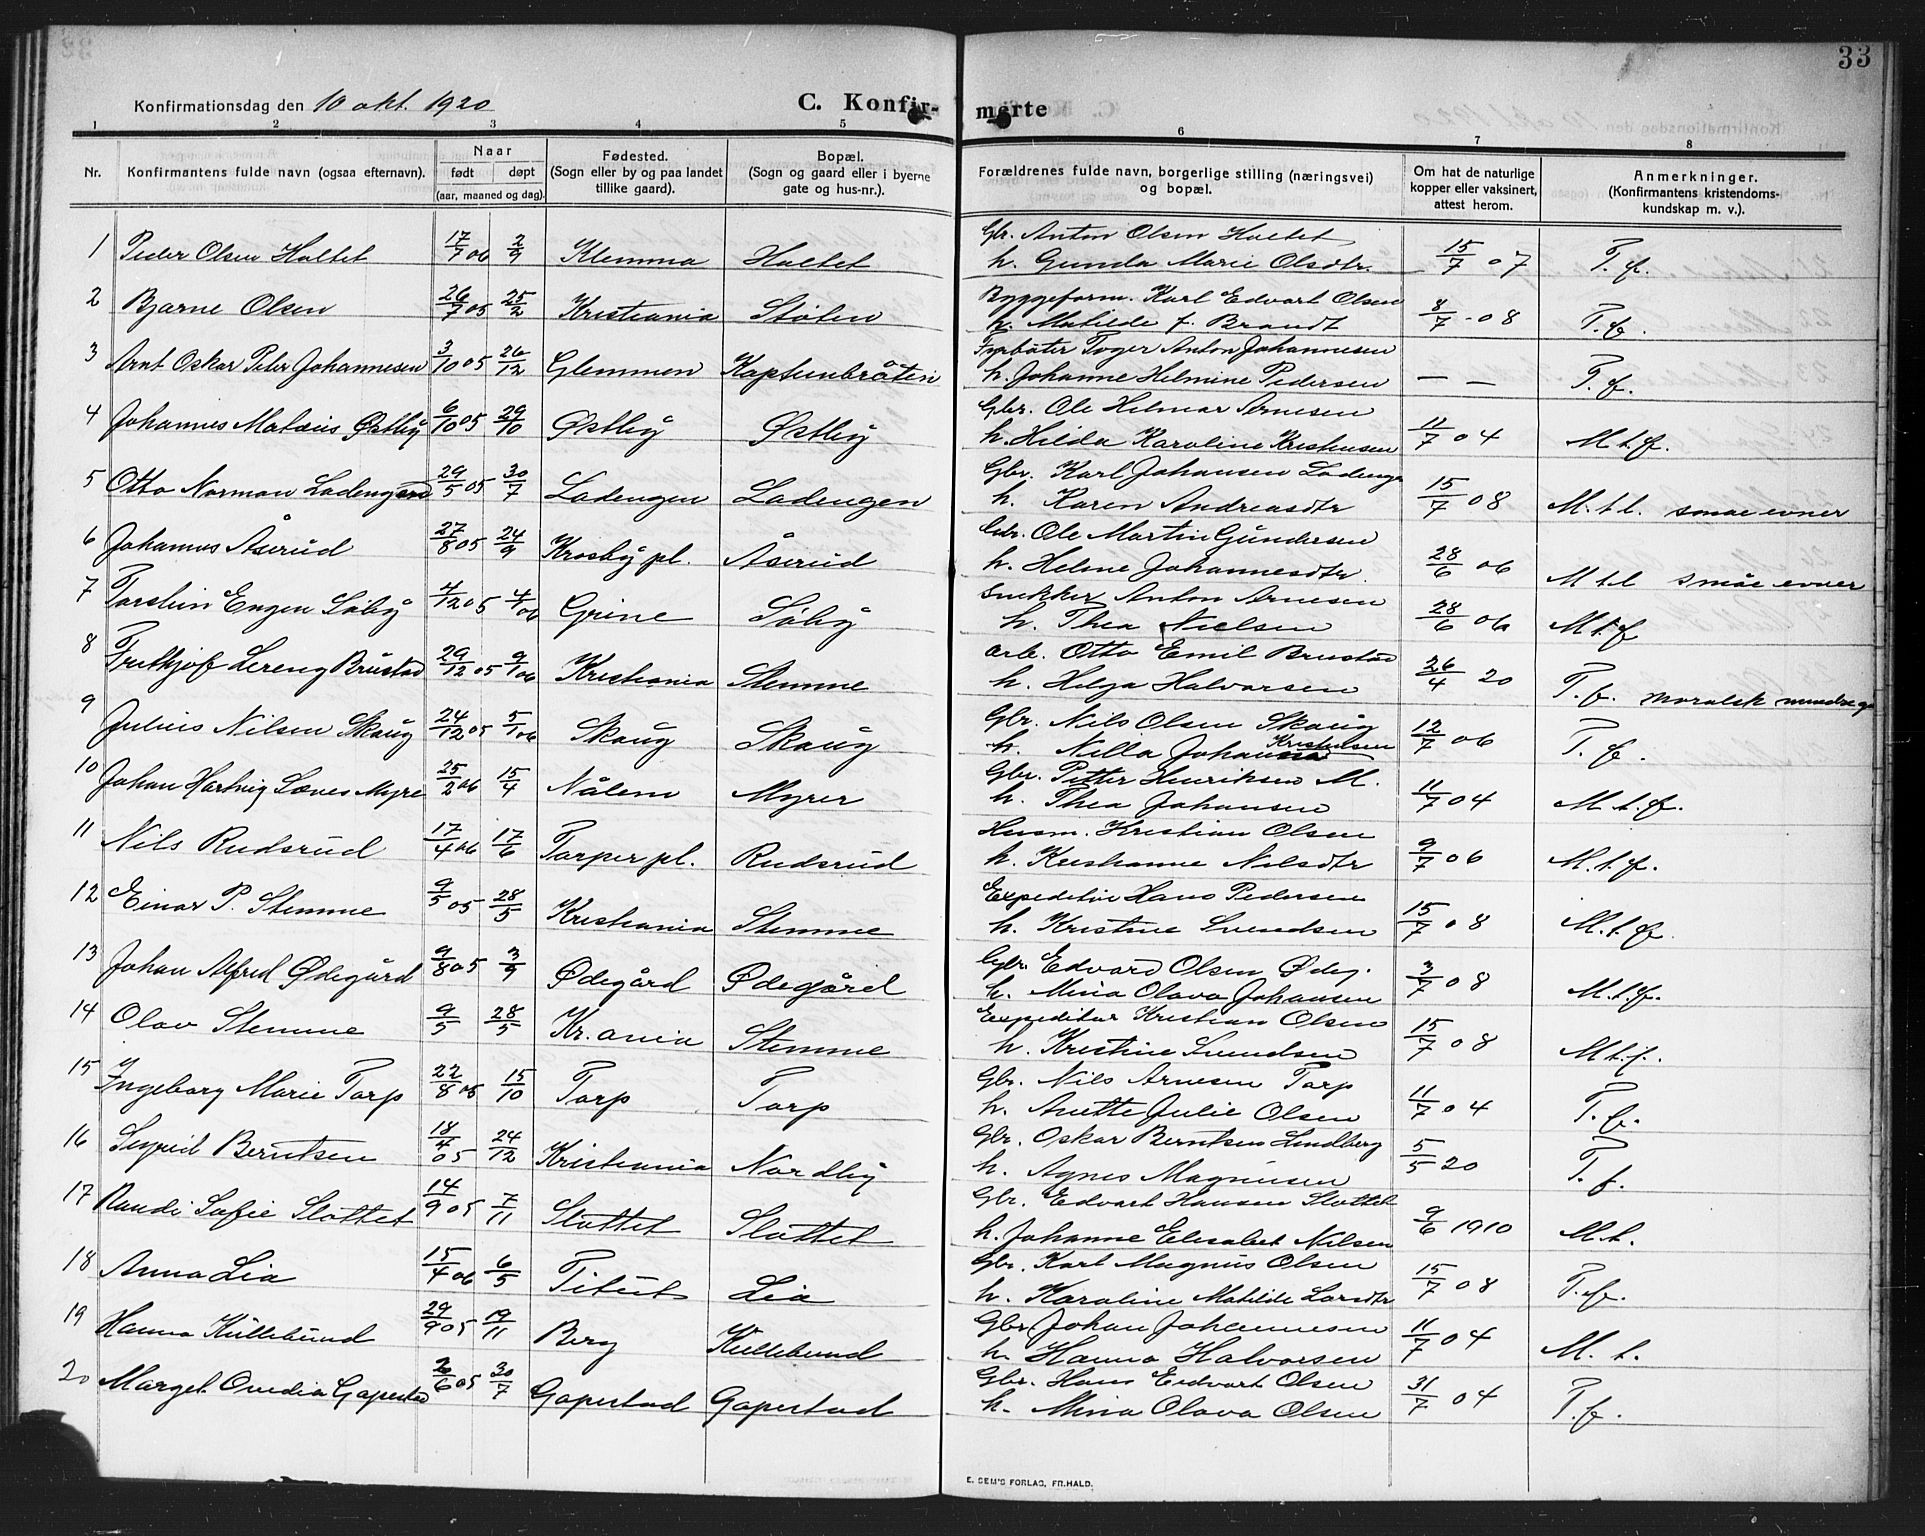 33
Konfirmationsdag den 10 okt. 1920 C. Konfir- merte
1 2 3 4 5 6 7 8
Nr. Konfirmantens fulde navn (ogsaa efternavn). Naar født døpt (aar, maaned og dag). Fødested. (Sogn eller by og paa landet tillike gaard). Bopæl. (Sogn og gaard eller i byerne gate og hus-nr.). Forældrenes fulde navn, borgerlige stilling (næringsvei) og bopæl. Om hat de naturlige kopper eller vaksinert, attest herom. Anmerkninger. (Konfirmantens kristendoms- kundskap m. v.).
1 Peder Olsen Holtet 17/7 06 2/9 Klemma Holtet Gbr. Anton Olsen Holtet
h. Gunda Marie Olsdtr. 15/7 07 T. f.
2 Bjarne Olsen 26/7 05 25/2 Kristiania Støten Byggeform. Karl Edvart Olsen
h. Matilde f. Brandt 8/7 - 08 T. f.
3 Arnt Oskar Peter Johannesen 3/10 05 26/12 Glemmen Kapteinbråten Fyrbøter Toger Anton Johannesen
h. Johanne Helmine Pedersen — — T. f.
4 Johannes Matæus Østby 6/10 05 29/10 Østby Østby Gbr. Ole Helmar Arnesen
h. Hilda Karoline Kristensen 11/7 04 M.t.f.
5 Otto Norman Ladengen 29/5 05 30/7 Ladengen Ladengen Gbr. Karl Johansen Ladenge
h. Karen Andreasdtr 15/7 08 M.t.l. smøe evner
6 Johannes Åserud 27/8 05 24/9 Krosby pl. Åserud Gbr. Ole Martin Gundersen
h. Helene Johannesdtr. 28/6 06 M t l smøe evner
7 Torstein Engen Søby 4/12 05 4/1 06 Grine Søby Snekker Anton Arnesen
h. Thea Nielsen 28/6 06 M t f
8 Fritkjof Lereng Brustad 29/12 05 9/1 06 Kristiania Stemme Arb. Otto Emil Brustad
h. Helga Halvorsen 26/4 20 T. f. moralsk
9 Julius Nilsen Skaug 24/12 05 5/1 06 Skaug Skaug Gbr. Nils Olsen Skaug
h. Nilla Johanna Kristensen 12/7 06 T. f.
10 Johan Hartvig Løves Myre 25/2 06 15/4 Nålem Myrer Gbr. Petter Henriksen M.
h. Thea Johansen 11/7 04 M.t.f.
11 Nils Rudsrud 17/4 06 17/6 Torper pl. Rudsrud Husm. Kristian Olsen
h. Kristianne Nilsdtr 9/7 06 M.t.f.
12 Einar P. Stemme 9/5 05 28/5 Kristiania Stemme Expeditør Hans Pedersen
h. Kristine Svendsen 15/7 08 M.t.f.
13 Johan Alfred Ødegård 9/8 05 3/9 Ødegård Ødegård Gbr. Edvard Olsen Ødeg.
h. Mina Olava Johansen 3/7 08 M.t.f.
14 Olav Stemme 9/5 28/5 Kr.ania Stemme Expeditør Kristian Olsen
h. Kristine Svendsen 15/7 08 M.t.f.
15 Ingeborg Marie Torp 22/8 05 15/10 Torp Torp Gbr. Nils Arnesen Torp
h. Anette Julie Olsen 11/7 04 T. f.
16 Sigrid Berntsen 18/4 05 24/12 Kristiania Nordby Gbr. Oskar Berntsen Lindberg
h. Agnes Magnusen 5/5 20 T. f.
17 Randi Sofie Slottet 14/9 05 7/11 Slottet Slottet Gbr. Edvart Hansen Slottet
h. Johanne Elisabet Nilsen 9/6 1910 M.t.
18 Anna Lia 15/4 06 6/5 Titut Lia Gbr. Karl Magnus Olsen
h. Karoline Matilde Larsdtr 15/7 08 T. f.
19 Hanna Kullebund 29/9 05 19/11 Berg Kullebund Gbr. Johan Johannesen
h. Hanna Halvorsen 11/7 04 M. t.
20 Marget Ovedia Gapestad 2/6 05 30/7 Gapestad Gapestad Gbr. Hans Edvart Olsen
h. Mina Olava Olsen 31/7 04 T. f.
E. SEM'S FORLAG, FR.HALD.